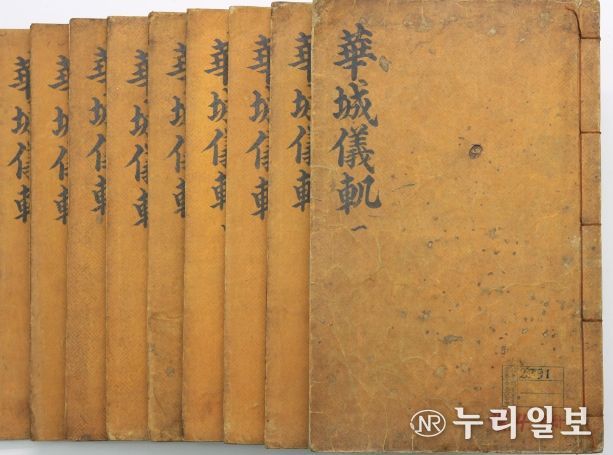 華城儀軌 一
華城儀軌
華城儀軌
華城儀軌
華城儀軌
華城儀軌
華城儀軌
華城儀軌
華城儀軌
NR 누리일보